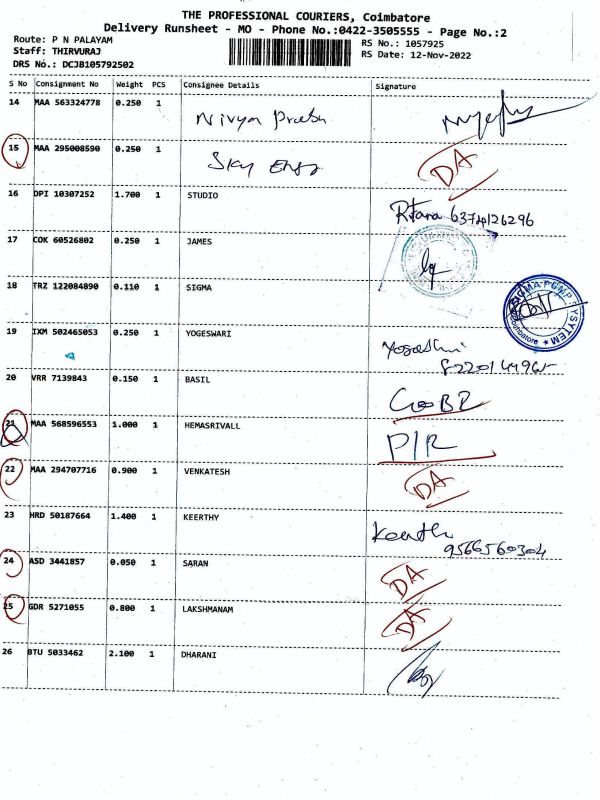 THE PROFESSIONAL COURIERS, Coimbatore
Delivery Runsheet - MO - Phone No.:0422-3505555 - Page No.:2
Route: P N PALAYAM
RS No.: 1057925
Staff: THIRVURAJ
RS Date: 12-Nov-2022
DRS No.: DCJB105792502
S No Consignment No Weight PCS Consignee Details Signature
14 MAA 563324778 0.250 1 Nivya Prabu
15 MAA 295008590 0.250 1 Sky DA
16 DPI 10307252 1.700 1 STUDIO 6374126296
17 COK 60526802 0.250 1 JAMES
18 TRZ 122084890 0.110 1 SIGMA
SIGMA PUMP SYSYTEM
19 IXM 502465053 0.250 1 YOGESWARI
20 VRR 7139843 0.150 1 BASIL
21 MAA 568596553 1.000 1 HEMASRIVALL P/R
22 MAA 294707716 0.900 1 VENKATESH DA
23 HRD 50187664 1.400 1 KEERTHY
9566560304
24 ASD 3441857 0.050 1 SARAN DA
25 GDR 5271055 0.800 1 LAKSHMANAM DA
26 BTU 5033462 2.100 1 DHARANI